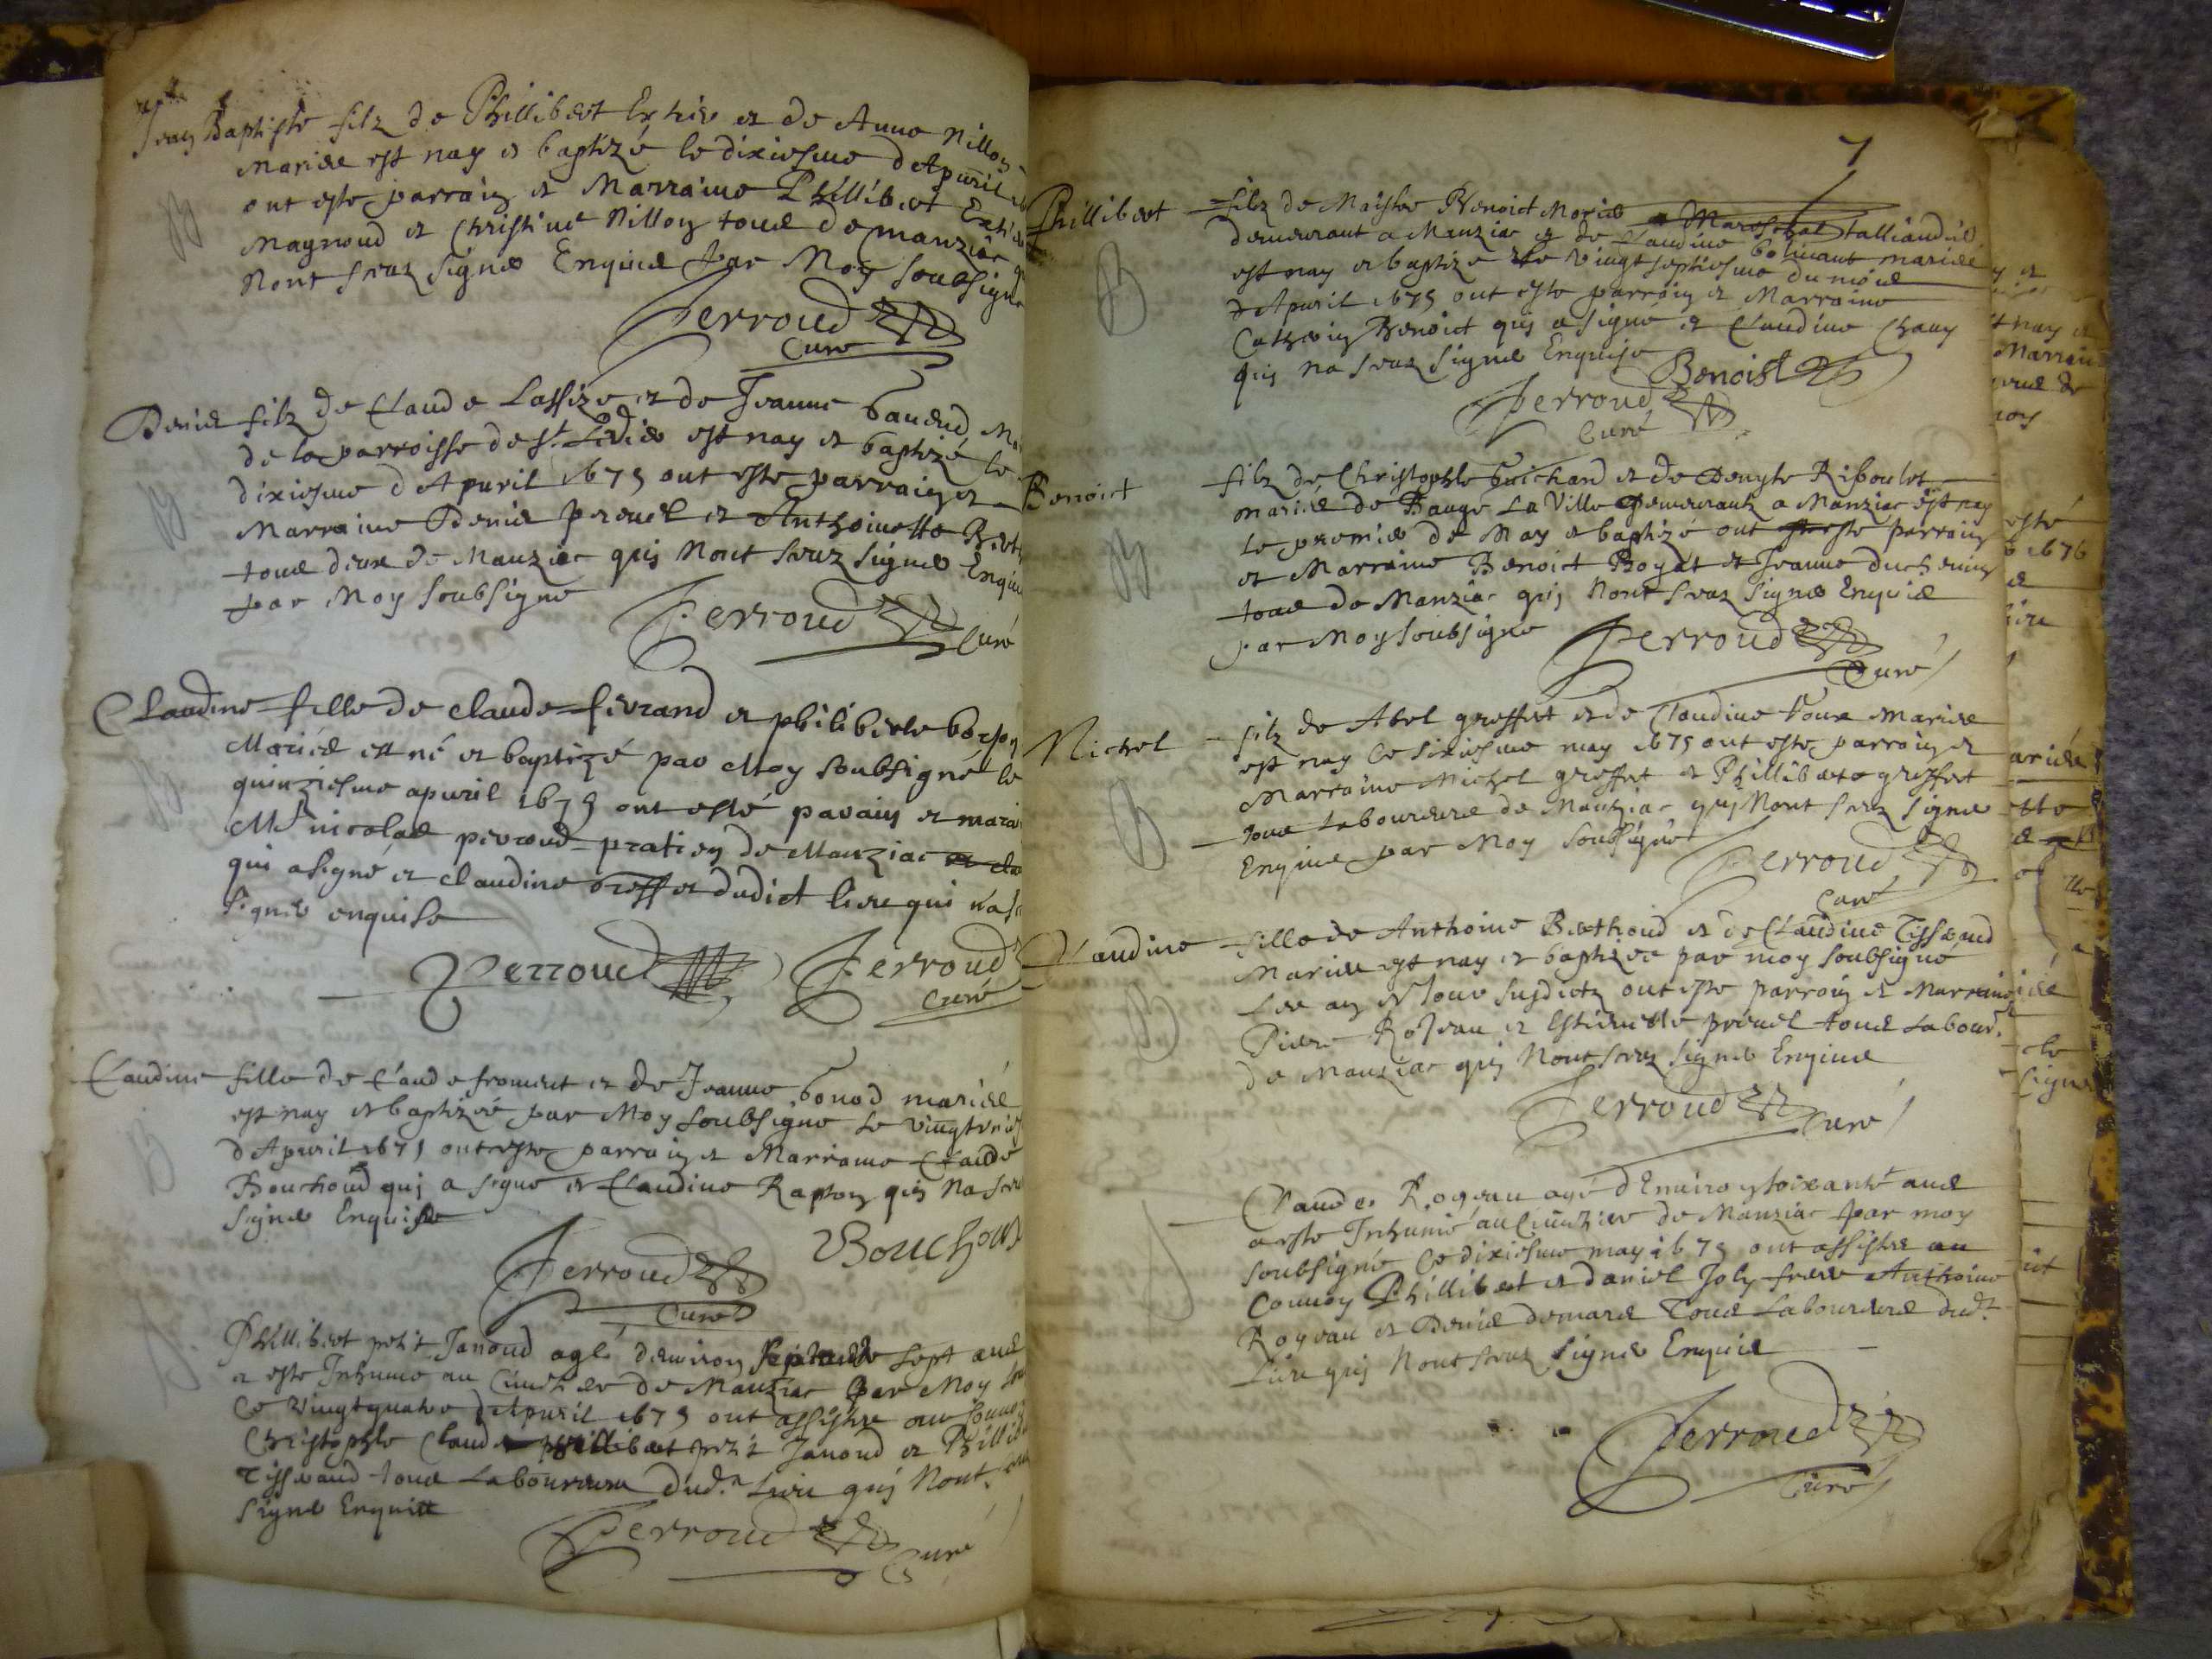 Jean Baptiste filz de Phillibert Extier et de Anne Nillon
Mariés est nay et baptizé le dixiesme d'Apuril
ont este parrain et Marraine Phillibert
Magnoud et Christine Nillon tous de manziac
Nont sceuz signer Enquis par Moy soubsigné
Perroud
Curé
Denis filz de Claude Lassize et de Jeanne
de la parroisse de St. est nay et baptizé le
dixiesme d'Apuril 1675 ont este parrain et
Marraine Denis preuel et Anthoinette
tous deux de Manziac quj Nont sceuz signer Enquis
par Moy soubsigne
Perroud Curé
Claudine fille de claude fierand et philiberte
Mariés est né et baptizé par Moy soubsigné le
quinziesme apuril 1675 ont esté parain et marai
Mr nicolas perroud pratien de Manziac
qui a signé et claudine greffet dudict lieu qui na
signer enquise
Perroud Perroud
Curé
Claudine fille de Claude froment et de Jeanne bonod mariés
est nay et baptizée par Moy soubsigne le
d'Apuril 1675 ont este parrain et Marraine Claude
Bouchoud quj a signe et Claudine Rapton quj Na sceu
signer Enquise
Bouchoud
Perroud
Curé
Phillibert petit Janoud agé denuiron sept ans
a este Inhumé au Cimetiere de Manziac par Moy
Ce vingtquatre d'Apuril 1675 ont assistés au Conuoy
Christophle Claude petit Janoud et Phillibert
Tisserand tous Laboureurs dud. Lieu quj Nont
signer Enquis
Perroud
Curé
7
Phillibert filz de Maistre Benoict Morier talliandier
demeurant a Manziac et de Claudine mariés
est nay et baptize le vingt septiesme du mois
d'Apuril 1675 ont este parrain et Marraine
Catherin Benoict quj a signe et Claudine Chany
quj na sceuz signer Enquise
Benoist
Perroud
Curé
Benoict filz de Christophle Guichard et de Denyse Riboulet
mariés de Baugé La Ville demeurants a Manziac est nay
le premier de May et baptizé ont este parrain
et Marraine Benoict Boyat et Jeanne
tous de Manziac quj Nont sceuz signer Enquis
par Moy soubsigne
Perroud
Curé
Michel filz de Abel greffet et de Claudine mariés
est nay Ce sixiesme may 1675 ont este parrain et
Marraine Michel greffet et Philliberte greffet
tous Laboureurs de Manziac quj Nont sceuz signer
Enquis par Moy soubsigne
Perroud
Curé
Claudine fille de Anthoine Berthoud et de Claudine Tisserand
Mariés est nay et baptizée par moy soubsigne
Les an et Jour susdictz ont este parrain et Marraine
Pierre Rojeau et Estiennette preuel tous Labours
de Manziac quj Nont sceuz signer Enquis
Perroud
Curé
Claude Rogeau agé d'Enuiron soixante ans
a este Inhumé au Cimetiere de Manziac par moy
soubsigné Ce dixiesme may 1675 ont assistés au
Conuoy Phillibert et daniel Joly frere Anthoine
Rogeau et Denis demare Tous Laboureurs dudt
Lieu quj Nont sceuz signer Enquis
Perroud
Curé